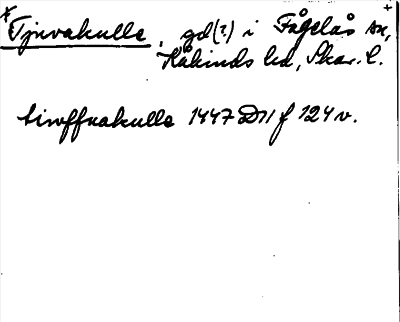 *Tjuvakulle, gd(?) i Fågelås sn, +
Kåkinds hd, Skar. l.
tiwffuakulle 1447 D11 f 124 v.